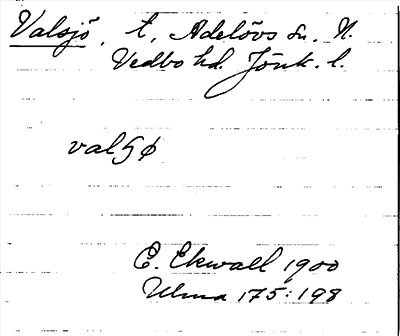 Valsjö, t, Adelövs sn. N.
Vedbo hd. Jönk. l.
valʃø
E. Ekwall 1900
Ulma 175:198